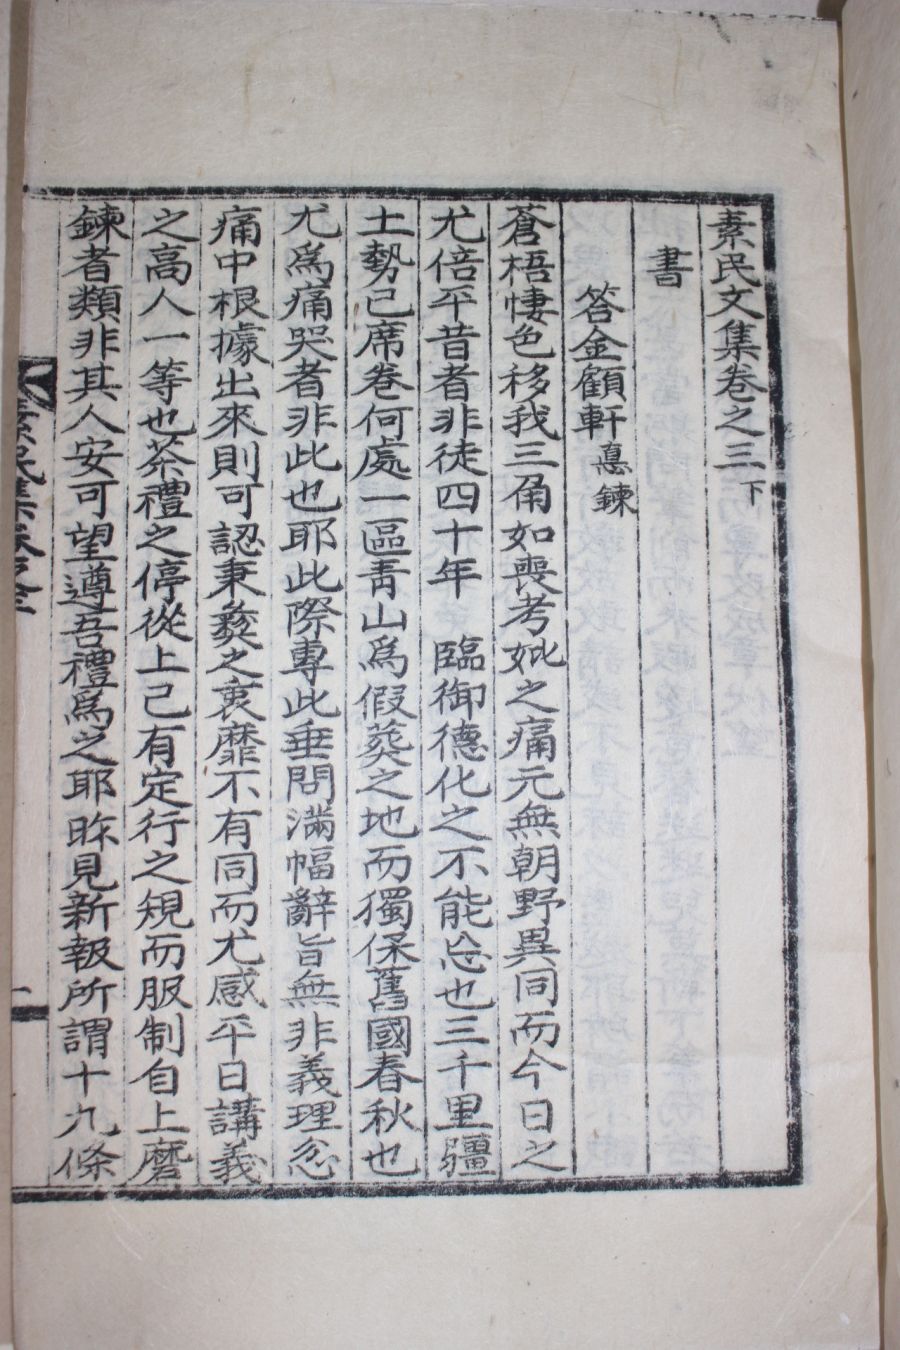 素民文集卷之三下
書
答金顧軒憙鍊
蒼梧悽色移我三角如喪考妣之痛元無朝野異同而今日之
尤倍平昔者非徒四十年 臨御德化之不能忘也三千里疆
土勢已席卷何處一區青山爲假葬之地而獨保舊國春秋也
尤爲痛哭者非此也耶此際專此垂問滿幅辭旨無非義理忿
痛中根據出來則可認秉彝之衷靡不有同而尤感平日講義
之高人一等也茶禮之停從上已有定行之規而服制自上磨
鍊者類非其人安可望遵吾禮爲之耶昨見新報所謂十九條